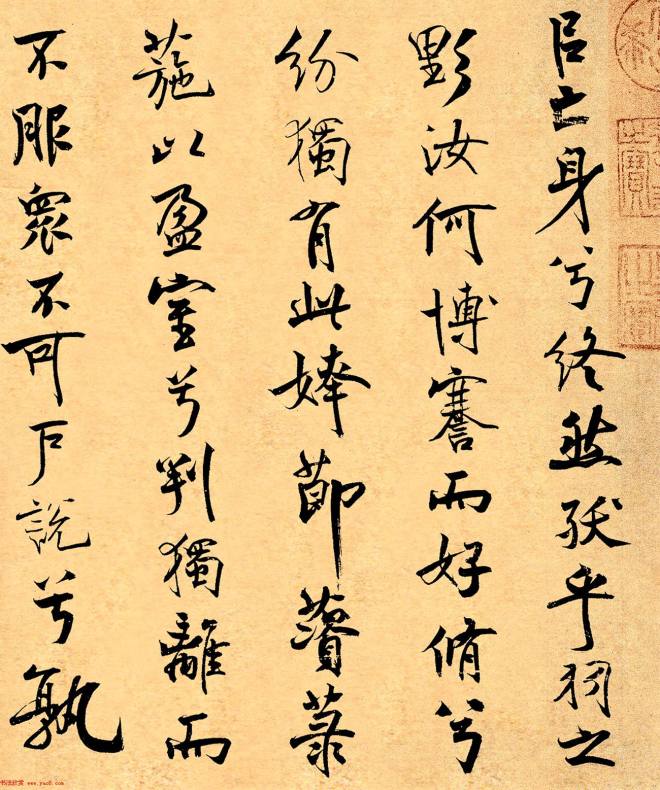 㠯亡身兮終然殀乎羽之
野汝何博謇而好脩兮
紛獨有此姱節薋菉
葹以盈室兮判獨離而
不服衆不可户說兮孰
书法欣赏 www.yac8.com